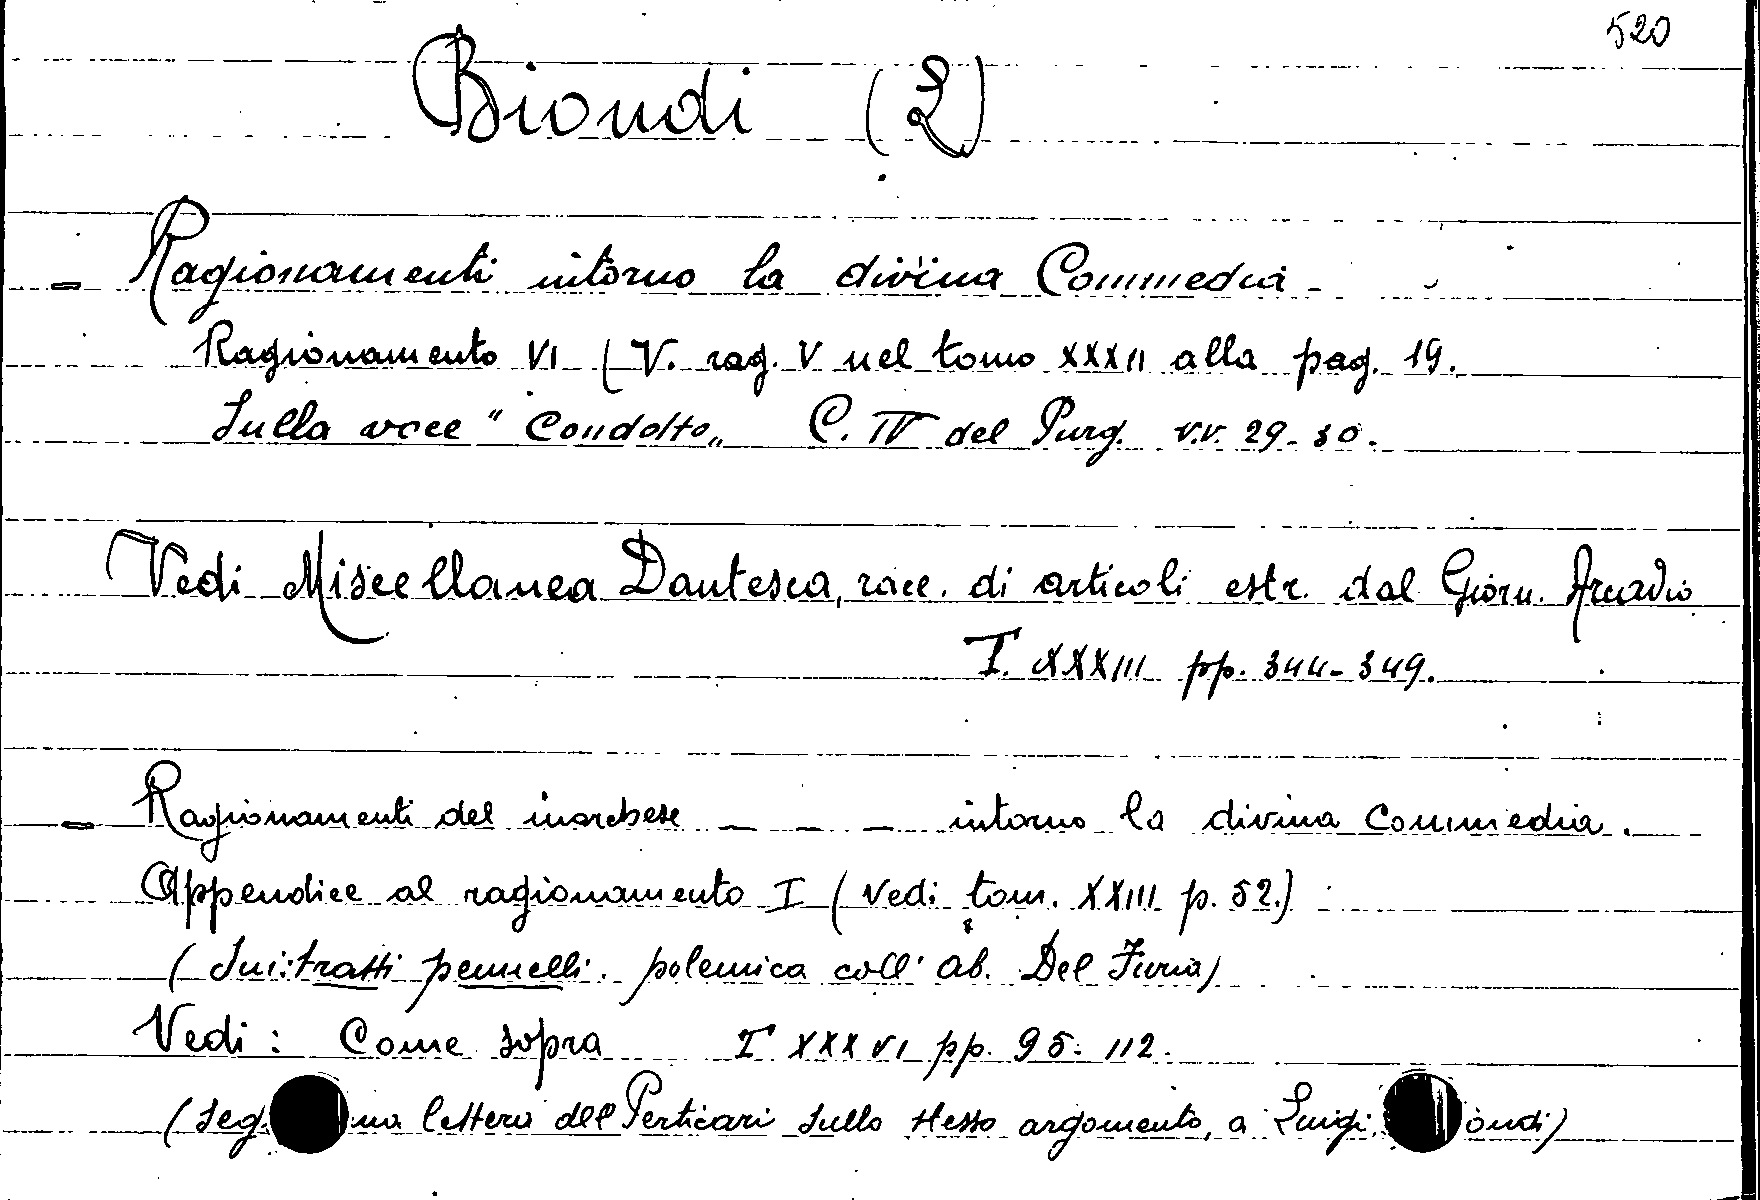 520
Biondi (L)
- Ragionamenti intorno la divina Commedia -
Ragionamento VI (V. rag. V nel tomo XXXII alla pag. 19.
Sulla voce "Condotto„ C. IV del Purg. v.v. 29-30.
Vedi Miscellanea Dantesca, racc. di articoli estr. dal Giorn. Arcadio
T. XXXIII pp. 344-349.
- Ragionamenti del marchese _ _ _ intorno la divina Commedia.
Appendice al ragionamento I (Vedi tom. XXIII p. 52.)
( Sui: tratti pennelli. polemica coll' ab. Del Furia)
Vedi: Come sopra T XXXVI pp. 95-112.
(Seg. na lettera del Perticari sullo stesso argomento, a Luigi ondi)